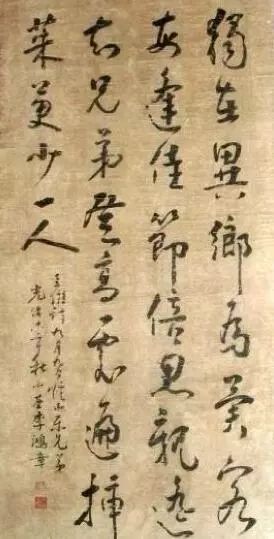 獨在異鄉為異客
每逢佳節倍思親遙
知兄弟登高處遍插
茱萸少一人
王維詩九月九日憶山東兄弟
光緒十秋少荃李鴻章